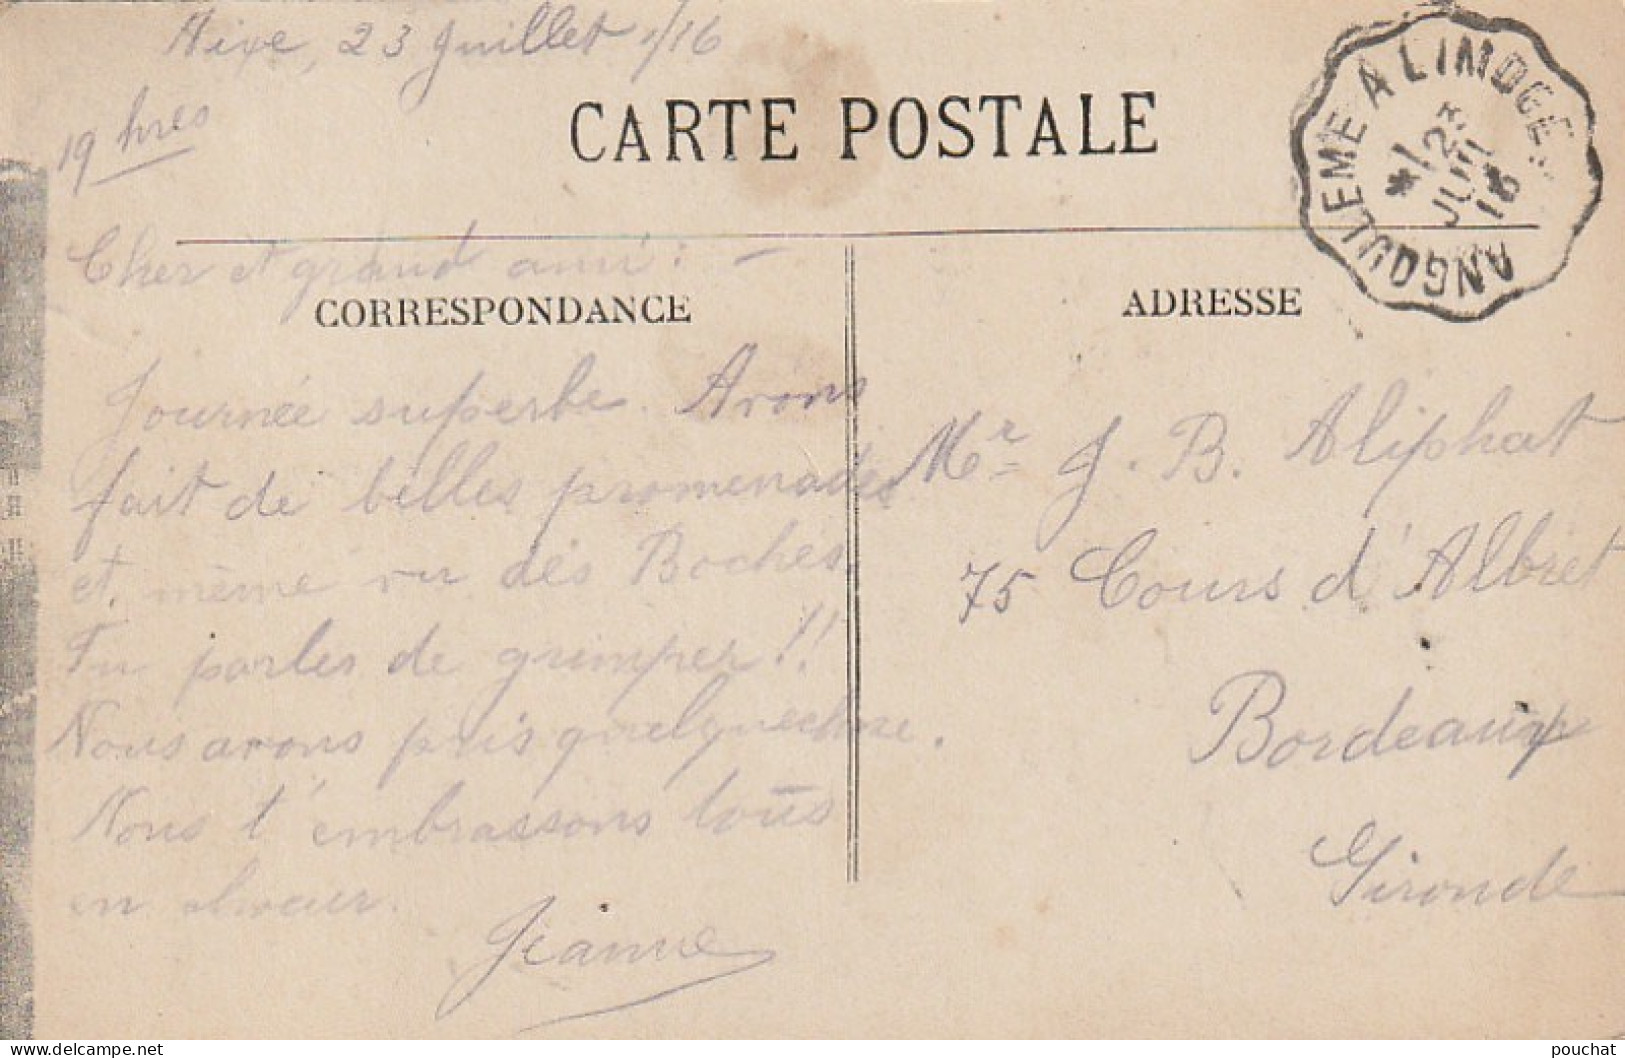 Aixe, 23 Juillet 1/16
19 hres
CARTE POSTALE
ANGOULEME A LIMOGES
23
JUIL
16
Cher et grand ami : –
CORRESPONDANCE
ADRESSE
Journée superbe. Avons
fait de belles promenades
et même vu des Boches.
Tu parles de grimper!!
Nous avons pris quelquechose.
Nous t'embrassons tous
en chœur.
Jeanne
Mr J. B. Aliphat
75 Cours d'Albret
Bordeaux
Gironde
pouchat